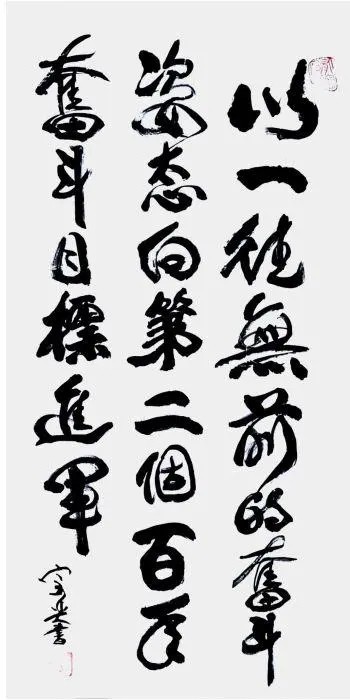 以一往無前的奮斗
姿态向第二個百年
奮斗目標進軍